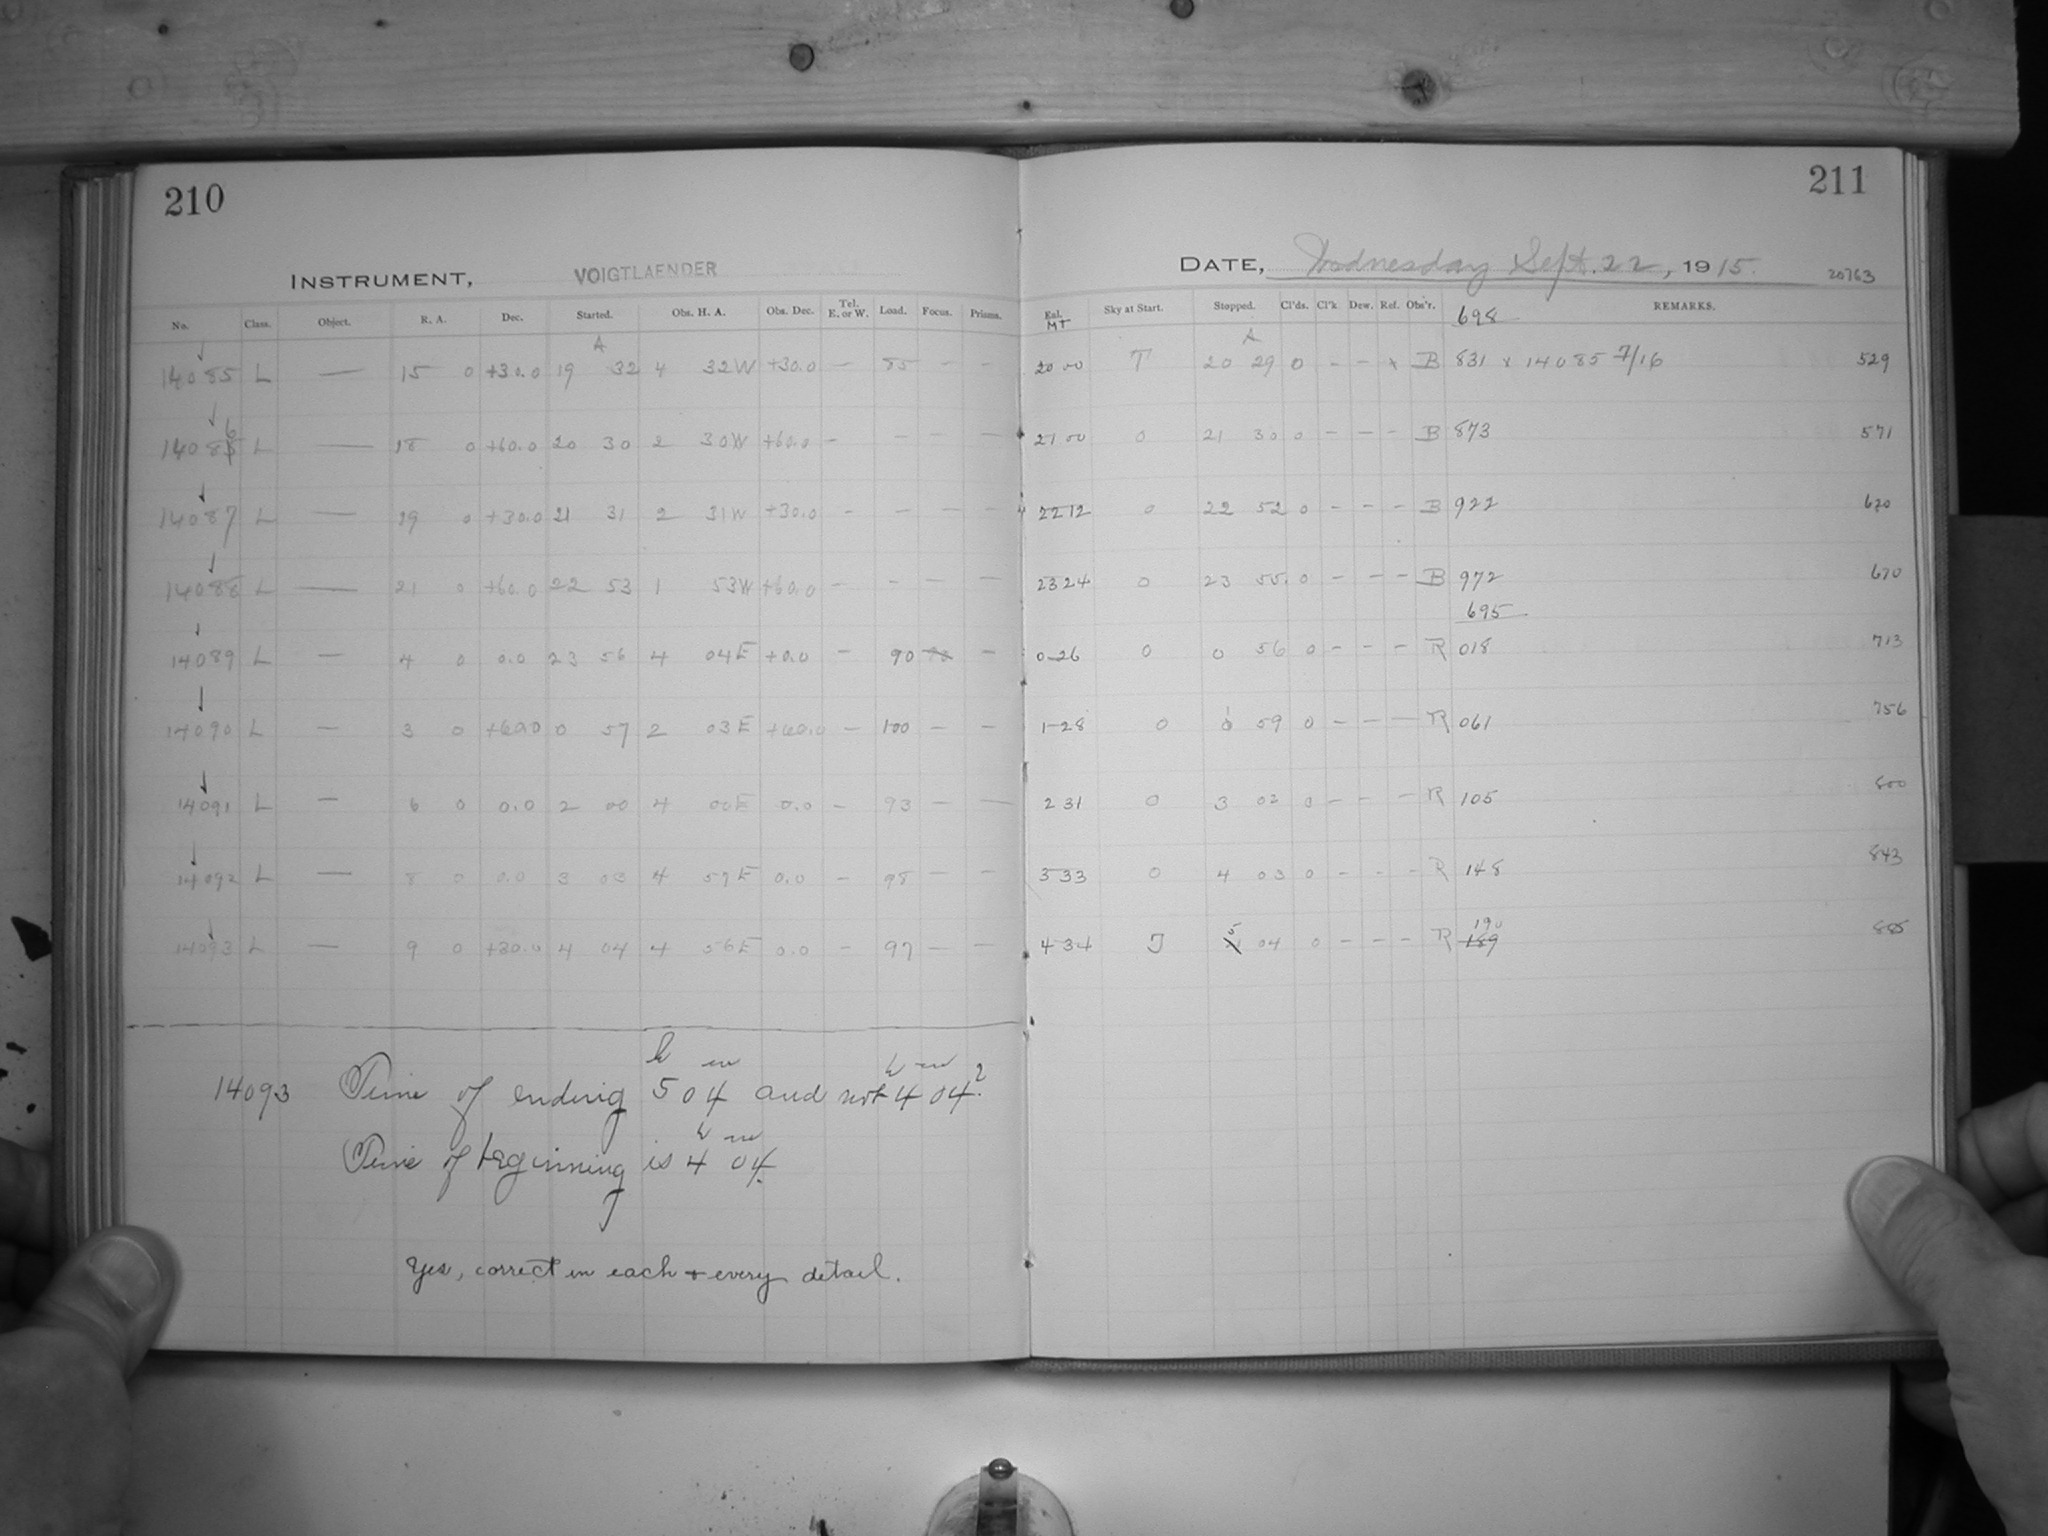 210
INSTRUMENT, VOIGTLAENDER
No. Class. Object. R. A. Dec. Started. Obs. H. A. Obs. Dec. Tel. E. or W. Load. Focus. Prisms.
A
14085 L — 15 0 +30.0 19 32 4 32W +30.0 — 85 - -
14086 L — 18 0 +60.0 20 30 2 30W +60.0 - - - -
14087 L — 19 0 +30.0 21 31 2 31W +30.0 - - - -
14088 L — 21 0 +60.0 22 53 1 53W +60.0 - - - -
14089 L — 4 0 0.0 23 56 4 04E +0.0 - 90 -
14090 L — 3 0 +60.0 0 57 2 03E +60.0 - 100 - -
14091 L — 6 0 0.0 2 00 4 00E 0.0 - 93 - -
14092 L — 8 0 0.0 3 03 4 57E 0.0 - 98 - -
14093 L — 9 0 +30.0 4 04 4 56E 0.0 - 97 - -
h m h m
14093 Time of ending 5 04 and not 4 04?
h m
Time of beginning is 4 04.
Yes, correct in each + every detail.
211
DATE, Wednesday Sept. 22, 1915. 20763
MT Sky at Start. Stopped. Cl'ds. Cl'k Dew. Ref. Obs'r. 698 REMARKS.
A
20 00 T 20 29 0 - - x B 831 x 14085 7/16 529
21 00 0 21 30 0 - - - B 873 571
22 12 0 22 52 0 - - - B 922 620
23 24 0 23 55 0 - - - B 972 670
695
0 26 0 0 56 0 - - - R 018 713
1 28 0 1 59 0 - - - R 061 756
2 31 0 3 02 0 - - - R 105 800
3 33 0 4 03 0 - - - R 148 843
190
4 34 J 5 04 0 - - - R 189 885